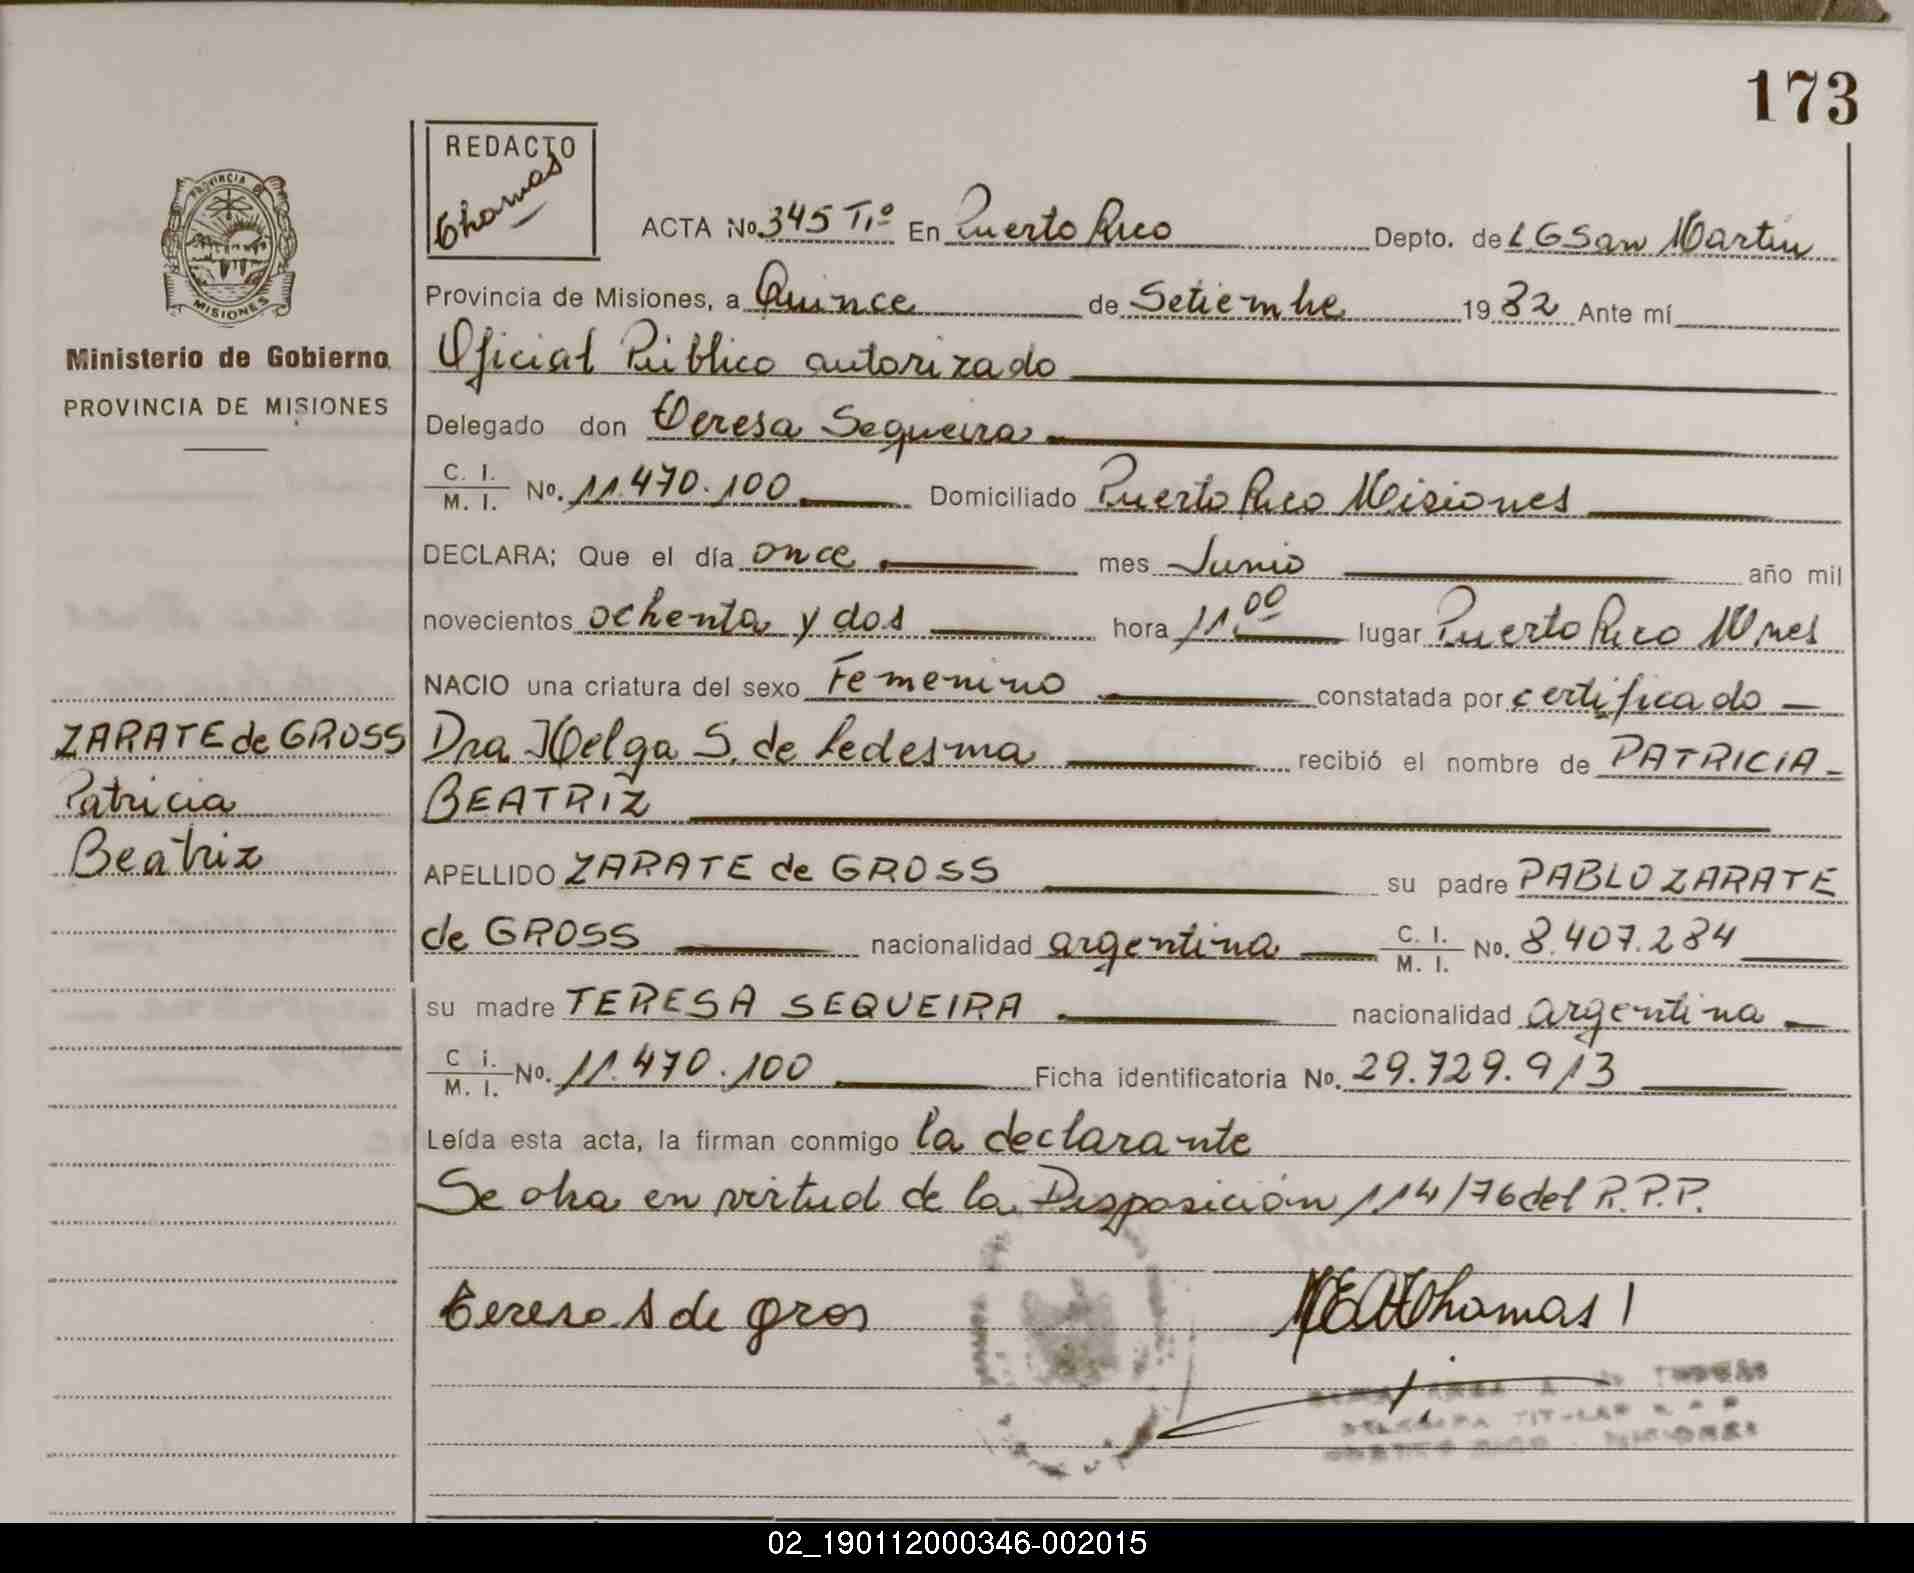 173
REDACTO
Thomas
PROVINCIA DE
MISIONES
Ministerio de Gobierno
PROVINCIA DE MISIONES
ACTA No. 345 Tº En Puerto Rico Depto. de L G San Martin
Provincia de Misiones, a Quince de Setiembre 1982 Ante mí
Oficial Público autorizado
Delegado don Teresa Sequeira
C. I. / M. I. No. 11.470.100 Domiciliado Puerto Rico Misiones
DECLARA; Que el día once mes Junio año mil
novecientos ochenta y dos hora 11.00 lugar Puerto Rico Mnes
NACIO una criatura del sexo Femenino constatada por certificado
Dra Helga S. de Ledesma recibió el nombre de PATRICIA
BEATRIZ
APELLIDO ZARATE de GROSS su padre PABLO ZARATE
de GROSS nacionalidad argentina C. I. / M. I. No. 8.407.284
su madre TERESA SEQUEIRA nacionalidad argentina
C i. / M. I. No. 11.470.100 Ficha identificatoria No. 29.729.913
Leída esta acta, la firman conmigo la declarante
Se obra en virtud de la Disposición 114/76 del R.P.P.
ZARATE de GROSS
Patricia
Beatriz
Teresa S de gros
Thomas
02_190112000346-002015